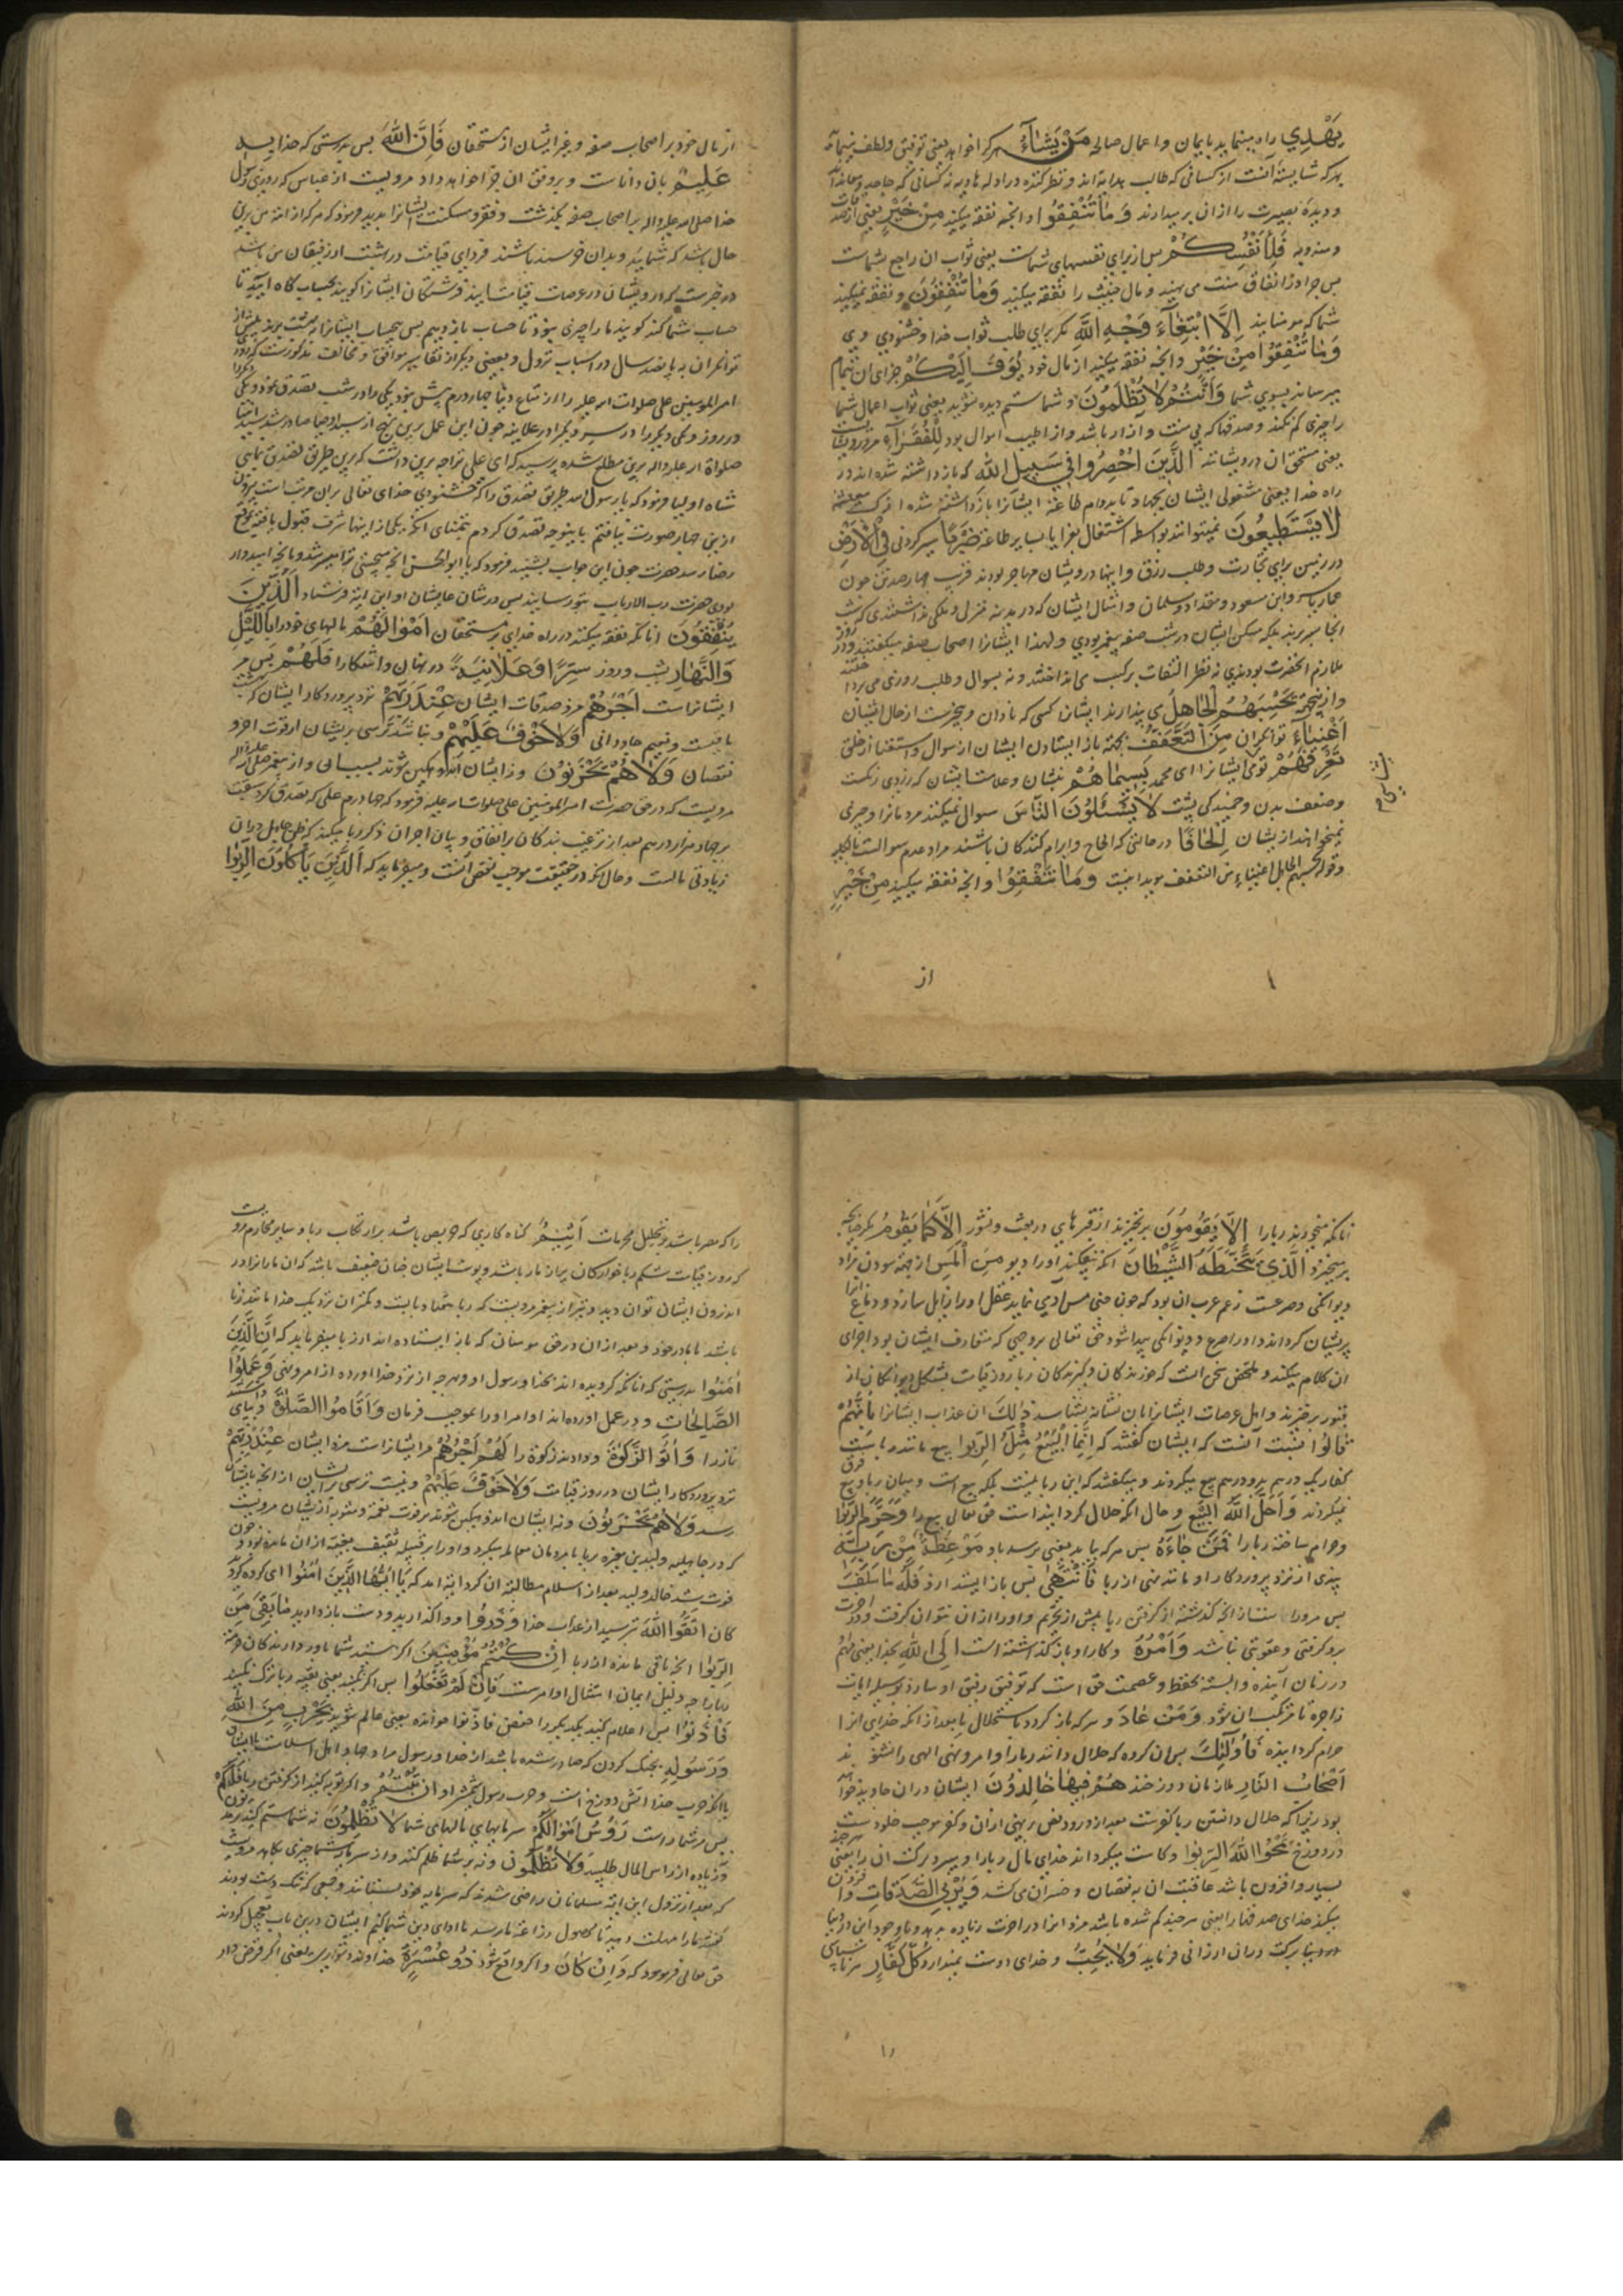 یَهْدِي راه مینماید بایمان و اعمال صالحه مَنْ یَشَآءُ هر کرا خواهد یعنی توفیق و لطف مینماید
بهر که شایسته آنست از کسانی که طالب هدایة اند و نظر کننده در ادله هادیه نه کسانی که جاحد و معاند اند
و دیدهٔ بصیرت را از ان بر میدارند وَمَا تُنْفِقُوا و انچه نفقه میکنید مِنْ خَیْرٍ یعنی از
فَلِأَنْفُسِكُمْ پس از برای نفسهای شماست یعنی ثواب ان راجع بشماست
پس چرا در انفاق منت می نهید و مال خبیث را نفقه میکنید وَمَا تُنْفِقُونَ و نفقه نمیکنید
شما که مومنانید إِلَّا ابْتِغَآءَ وَجْهِ اللَّهِ مکر برای طلب ثواب خدا و خشنودي وي
وَمَا تُنْفِقُوا مِنْ خَیْرٍ و انچه نفقه میکنید از مال خود یُوَفَّ إِلَیْكُمْ جزای ان بتمام
میرسانند بسوي شما وَأَنْتُمْ لَا تُظْلَمُونَ و شما ستم دیده نشوید یعنی ثواب اعمال شما
را چیزی کم نکنند و صدقها که بی منت و ازار باشد و از اطیب اموال بود لِلْفُقَرَآءِ
یعنی مستحق ان درویشانند الَّذِینَ أُحْصِرُوا فِي سَبِیلِ اللَّهِ که باز داشته شده اند در
راه خدا یعنی مشغولی ایشان بجهاد
لَا یَسْتَطِیعُونَ نمیتوانند بواسطه اشتغال بغزا یا بسایر طاعة ضَرْبًا سیر کردنی فِي الْأَرْضِ
در زمین برای تجارت و طلب رزق و اینها درویشان مهاجر بودند قریب چهار صد تن چون
عمار یاسر و ابن مسعود و مقداد و سلمان و امثال ایشان که در مدینه منزل و ملکی نداشتندی که شب
انجا بسر برند بلکه مسکن ایشان در شب صفه پیغمبر بودي و لهذا ایشانرا اصحاب صفه میکفتند
ملازم انحضرت بودندي نه نظر التفات بر کسب می انداختند و نه بسوال و طلب روزی می پرداختند
یَحْسَبُهُمُ الْجَاهِلُ می پندارند ایشانرا کسی که نادان و بیخبرست از حال ایشان
أَغْنِیَآءَ توانکران مِنَ التَّعَفُّفِ بجهة باز ایستادن ایشان از سوال و استغنا از خلق
تَعْرِفُهُمْ تو می ایشانرا ای محمد بِسِیمَاهُمْ بنشان و علامت ایشان که زردي رنکست
و ضعف بدن و خمیدکی پشت لَا یَسْئَلُونَ النَّاسَ سوال نمیکنند مردمانرا و چیزی
نمیخواهند از ایشان إِلْحَافًا در حالتی که الحاح و ابرام کنندکان باشند مراد عدم سوالست بالکلیه
و قوله یحسبهم الجاهل اغنیاء من التعفف موید اینست وَمَا تُنْفِقُوا و انچه نفقه میکنید مِنْ خَیْرٍ
از
از مال خود بر اصحاب صفه و غیر ایشان از مستحقان فَإِنَّ اللَّهَ پس بدرستی که خدا
عَلِیمٌ بان داناست و بر وفق ان جزا خواهد داد مرویست از عباس که روزی رسول
خدا صلی الله علیه واله بر اصحاب صفه بکذشت و فقر و مسکنت ایشانرا بدید فرمود که هر که از امة من برین
حال باشد که شمایید و بدان خرسند باشند فردای قیامت در بهشت از رفیقان من باشد
در خبرست که درویشان در عرصات قیامت ایند فرشتکان ایشانرا کویند بحساب کاه ایید تا
حساب شما کنند کویند ما را چیزی نبود تا حساب باز دهیم پس بیحساب ایشانرا به بهشت برند پیش از
توانکران به پانصد سال و در اسباب نزول و بعضی دیکر از تفاسیر موافق و مخالف مذکورست که
امیر المومنین علی صلوات الله علیه را از متاع دنیا چهار درم بیش نبود یکی را در شب تصدق نمود و یکی
در روز و یکی دیکر را در سر و دیکر را در علانیه چون این عمل برین نهج از سید اوصیا صادر شد
صلواة الله علیه واله برین مطلع شده پرسید که ای علی ترا چه برین داشت که برین طریق تصدق نمایی
شاه اولیا فرمود که یا رسول الله طریق تصدق را که خشنودی خدای تعالی بران مرتب است بیرون
ازین چهار صورت نیافتم باین وجه تصدق کردم بتمنای انکه یکی از اینها شرف قبول یافته
رضا رسد حضرت چون این جواب بشنید فرمود که یا ابو الحسن انچه میجستی ترا میسر شد و بانچه امیدوار
بودی حضرت رب الارباب بتو رسانید پس در شان عالیشان او این ایة فرستاد الَّذِینَ
یُنْفِقُونَ انانکه نفقه میکنند در راه خدای بر مستحقان أَمْوَالَهُمْ مالهای خود را بِاللَّیْلِ
وَالنَّهَارِ بشب و روز سِرًّا وَعَلَانِیَةً در نهان و اشکارا فَلَهُمْ پس مر
ایشانراست أَجْرُهُمْ مزد صدقات ایشان عِنْدَ رَبِّهِمْ نزد پروردکار ایشان که بهشت
باقیست و نعیم جاودانی وَلَا خَوْفٌ عَلَیْهِمْ و نباشد ترسی بریشان از فوت اجر و
نقصان وَلَا هُمْ یَحْزَنُونَ و نه ایشان اندوهکین شوند
مرویست که در حق حضرت امیر المومنین علی صلوات الله علیه فرمود که چهار درم علی که تصدق کرد
بر چهار هزار درم بعد از ترغیب بندکان بر انفاق و بیان اجر ان ذکر ربا میکند که
زیادتی مالست و حال انکه در حقیقت موجب نقص انست و میفرماید که الَّذِینَ یَأْكُلُونَ الرِّبوا
انانکه میخورند ربا را لَا یَقُومُونَ بر نخیزند از قبرهای در بعث و نشور إِلَّا كَمَا یَقُومُ مکر چنانچه
بر میخیزد الَّذِي یَتَخَبَّطُهُ الشَّیْطَانُ انکه میفکند او را دیو مِنَ الْمَسِّ از جهة سودن مراد
دیوانکی و صرعست زعم عرب ان بود که چون جنی مس آدمي نماید عقل او را زایل سازد و دماغ
پریشان کرداند و او را صرع و دیوانکی پیدا شود حق تعالی بر وجهی که متعارف ایشان بود اجرای
ان کلام میکند و ملخص سخن انست که خورندکان و کیرندکان ربا روز قیامت بشکل دیوانکان از
قبور برخیزند و اهل عرصات ایشانرا بان نشانه بشناسند ذٰلِكَ ان عذاب ایشانرا بِأَنَّهُمْ
قَالُوا بسبب آنست که ایشان کفتند که إِنَّمَا الْبَیْعُ مِثْلُ الرِّبوا بیع مانند رباست
کفار یک درهم بدو درهم بیع میکردند و میکفتند که این ربا نیست بلکه بیع است و میان ربا و بیع فرق
نمیکردند وَأَحَلَّ اللَّهُ الْبَیْعَ و حال انکه حلال کردانیده است حق تعالی بیع را وَحَرَّمَ الرِّبوا
و حرام ساخته ربا را فَمَنْ جَآءَهُ پس هر که بیاید یعنی برسد باو مَوْعِظَةٌ مِنْ رَبِّهِ
پندی از نزد پروردکار او مانند نهی از ربا فَانْتَهَی پس باز ایستد از و فَلَهُ مَا سَلَفَ
پس مر اوراست انچه کذشته از کرفتن ربا پیش از تحریم و او را از ان نتوان کرفت و در اخرت
برو کرفتی و عقوبتی نباشد وَأَمْرُهُ و کار او باز کذاشته است إِلَی اللَّهِ بخدا
در زمان آینده وابسته بحفظ و عصمت حق است که توفیق رفیق او سازد بوسیله ایات
زاجره تا مرتکب ان نشود وَمَنْ عَادَ و هر که باز کردد باستحلال ربا بعد از انکه خدای انرا
حرام کردانیده فَأُولٰئِكَ پس ان کروه که حلال دانند ربا را و امر و نهی الهی را نشنوند
أَصْحَابُ النَّارِ ملازمان دوزخند هُمْ فِیهَا خَالِدُونَ ایشان دران جاوید خواهند
بود زیرا که حلال دانستن ربا کفرست بعد از ورود نص بر نهی ازان و کفر موجب خلودست
در دوزخ یَمْحَقُ اللَّهُ الرِّبوا و کاست میکرداند خدای مال ربا را و میبرد برکت ان را یعنی
بسیار و افزون باشد عاقبت ان به نقصان و خسران می کشد وَیُرْبِي الصَّدَقَاتِ و افزون
میکند خدای صدقها را یعنی هر چند کم شده باشد مزد انرا در اخرت زیاده بدهد و با وجود این در دنیا
برکت دران ارزانی فرماید وَلَا یُحِبُّ و خدای دوست نمیدارد كُلَّ كَفَّارٍ هر ناسپاسی
را که مصر باشد بر تحلیل محرمات أَثِیمٍ کناه کاری که حریص باشد بر ارتکاب ربا و سایر محارم
که روز قیامت شکم ربا خوارکان پر از مار باشد و پوست ایشان چنان ضعیف باشد که ان مارانرا در
اندرون ایشان توان دید و نیز از پیغمبر مرویست که ربا هفتاد بابست و کمتر ان نزدیک خدا مانند زنا
باشد با مادر خود و بعد از ان در حق مومنان که باز ایستاده اند از ربا میفرماید که إِنَّ الَّذِینَ
آمَنُوا بدرستی که انانکه کرویده اند بخدا و رسول او و بهر چه از نزد خدا اورده از امر و نهی وَعَمِلُوا
الصَّالِحَاتِ و در عمل اورده اند اوامر او را بموجب فرمان وَأَقَامُوا الصَّلٰوةَ و بپای
نماز را وَآتَوُا الزَّكٰوةَ و دادند زکوة را لَهُمْ أَجْرُهُمْ مر ایشانراست مزد ایشان عِنْدَ رَبِّهِمْ
نزد پروردکار ایشان در روز قیامت وَلَا خَوْفٌ عَلَیْهِمْ و نیست ترسی بر ایشان از انچه بایشان
رسد وَلَا هُمْ یَحْزَنُونَ و نه ایشان اندوهکین شوند بر فوت نعمت و مثوبه از ایشان مرویست
که در جاهلیه ولید بن مغیره بربا با مردمان معامله میکرد و او را بر قبیله ثقیف بقیه ازان مانده بود و چون
فوت شد خالد ولید بعد از اسلام مطالبه ان کرد ایة امد که یَا أَیُّهَا الَّذِینَ آمَنُوا ای کروه
کان اتَّقُوا اللَّهَ بترسید از عذاب خدا وَذَرُوا و واکذارید و دست باز دارید مَا بَقِيَ مِنَ
الرِّبوا انچه باقی مانده از ربا إِنْ كُنْتُمْ مُؤْمِنِینَ اکر هستید شما باور دارندکان
ربا را چه دلیل ایمان امتثال اوامرست فَإِنْ لَمْ تَفْعَلُوا پس اکر نکنید یعنی بقیه ربا ترک نکنید
فَأْذَنُوا پس اعلام کنید یکدیکر را حفص فاذنوا خوانده یعنی عالم شوید بِحَرْبٍ مِنَ اللَّهِ
وَرَسُولِهِ بجنک کردن که صادر شده باشد از خدا و رسول
یا انکه حرب خدا اتش دوزخ است و حرب رسول شمشیر او وَإِنْ تُبْتُمْ و اکر توبه کنید از کرفتن ربا فَلَكُمْ
پس مر شما راست رُؤُسُ أَمْوَالِكُمْ سرمایهای مالهای شما لَا تَظْلِمُونَ نه شما ستم کنید
و زیاده از راس المال طلبید وَلَا تُظْلَمُونَ و نه بر شما ظلم کنند و از سرمایه شما چیزی بکاهند
که بعد از نزول این ایة مسلمانان راضی شدند که سرمایه خود بستانند و جمعی که تنک دست بودند
کفتند ما را مهلت دهید تا محصول زراعة ما رسد تا ادای دین شما کنیم ایشان درین باب تعجیل کردند
حق تعالی فرمود که وَإِنْ كَانَ و اکر واقع شود ذُو عُسْرَةٍ خداوند دشواری یعنی اکر قرض دار